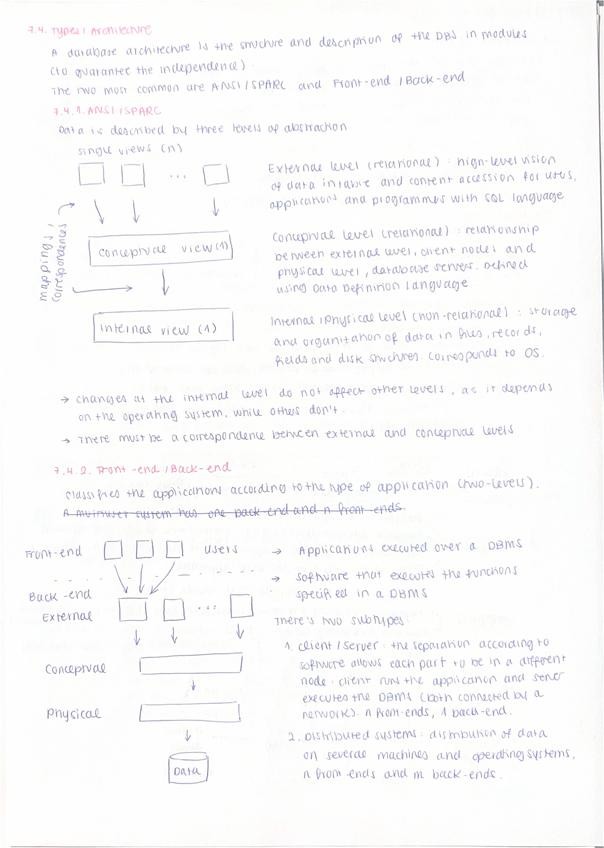 7.4. Types / Architecture
A database architecture is the structure and description of the DBS in modules
(to guarantee the independence).
The two most common are ANSI/SPARC and Front-end / Back-end
7.4.1. ANSI/SPARC
Data is described by three levels of abstraction
single views (n)
...
mappings /
correspondences
conceptual view (1)
internal view (1)
External level (relational): high-level vision
of data in table and content accession for users,
applications and programmes with SQL language
Conceptual level (relational): relationship
between external level, client nodes and
physical level, database servers. Defined
using Data Definition Language
Internal / Physical level (non-relational): storage
and organitation of data in files, records,
fields and disk structures. Corresponds to OS.
→ Changes at the internal level do not affect other levels, as it depends
on the operating system, while others don't.
→ There must be a correspondence between external and conceptual levels
7.4.2. Front-end / Back-end
Classifies the applications according to the type of application (two-levels).
A multiuser system has one back-end and n front-ends.
Front-end
Users
Back-end
External
...
Conceptual
Physical
DATA
→ Applications executed over a DBMS
→ Software that executes the functions
specified in a DBMS
There's two subtypes:
1. Client / Server: the separation according to
software allows each part to be in a different
node: client runs the application and server
executes the DBMS (both connected by a
network). n front-ends, 1 back-end.
2. Distributed systems: distribution of data
on several machines and operating systems,
n front-ends and m back-ends.